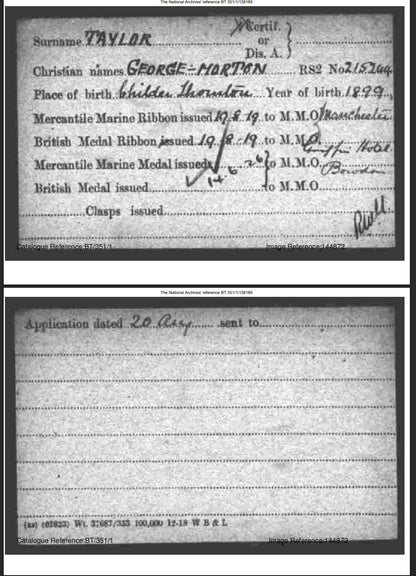 The National Archives' reference BT 351/1/138169
Surname TAYLOR Certif. or Dis. A.
Christian names GEORGE-MORTON RS2 No 215244
Place of birth Childer Thornton Year of birth 1899
Mercantile Marine Ribbon issued 19.8.19 to M.M.O. Manchester
British Medal Ribbon issued 19.8.19 to M.M.O. Griffin Hotel
Mercantile Marine Medal issued 14.6.26 to M.M.O. Bowdon
British Medal issued to M.M.O.
Clasps issued
Catalogue Reference:BT/351/1 Image Reference:144872
The National Archives' reference BT 351/1/138169
Application dated 20 Aug sent to
(22) (62823) Wt. 37687/353 100,000 12-18 W B & L
Catalogue Reference:BT/351/1 Image Reference:144872